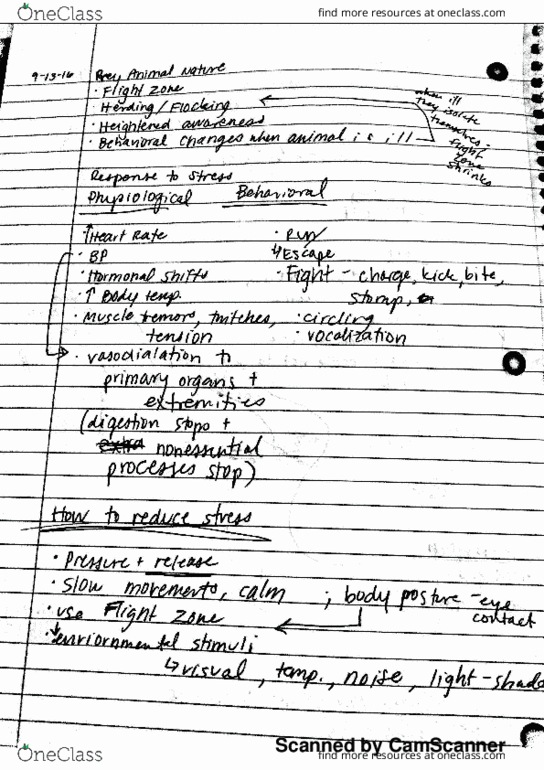 OneClass
find more resources at oneclass.com
9-13-16 Prey Animal Nature
· Flight zone
· Herding / Flocking
· Heightened awareness
· Behavioral changes when animal is ill
when ill
they isolate
themselves -
flight
zone
shrinks
Response to Stress
Physiological Behavioral
↑ Heart Rate · Run
· BP ↳ Escape
· Hormonal shifts · Fight - charge, kick, bite,
· ↑ Body temp. stomp,
· Muscle tremors, twitches, · circling
tension · vocalization
· vasodialation to
primary organs +
extremities
(digestion stops +
nonessential
processes stop)
How to reduce stress
· Pressure + release
· Slow movements, calm ; body posture - eye
contact
· use Flight zone
· ↓ enviornmental stimuli
↳ visual, temp., noise, light - shado
Scanned by CamScanner
OneClass
find more resources at oneclass.com